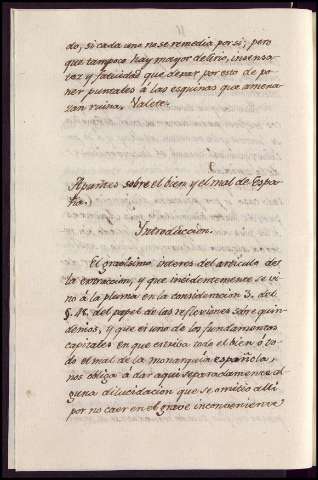 do, si cada uno no se remedia por si; pero
que tampoco hay mayor delirio, insensa
tez y fatuidad que dexar por esto de po
ner puntales á las esquinas que amena
zan ruina. Valete.
Apuntes sobre el bien y el mal de Espa
ña.)
Introduccion.
El gravisimo interes del articulo de
la extraccion, y que incidentemente se vi
no á la pluma en la consideracion 3. del
§. 4. del papel de las reflexiones sobre quin
denios, y que es uno de los fundamentos
capitales en que estriba todo el bien ó to
do el mal de la monarquía española,
nos obliga á dar aqui separadamente al
guna dilucidacion que se omitio alli
por no caer en el grave inconveniente